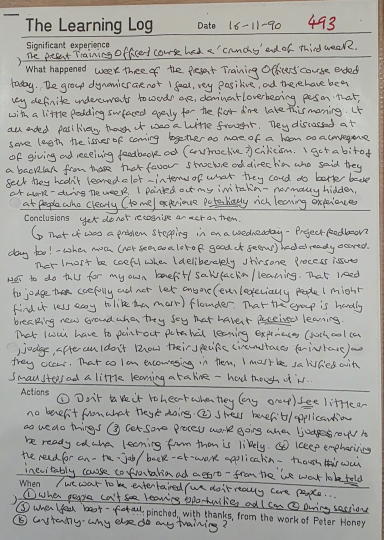 The Learning Log Date 16-11-90 493
Significant experience
The present Training Officers course had a 'crunchy' end of third week.
What happened week three of the present Training Officers' course ended
today. The group dynamics are not I feel, very positive, and there have been
very definite undercurrents towards one, dominant/overbearing person that,
with a little padding surfaced openly for the first time late this morning. It
all ended positively though it was a little fraught. They discussed at
some length the issues of coming together as more of a team as a consequence
of giving and receiving feedback and (constructive?) criticism. I got a bit of
a backlash from those that favour structure and direction who said they
felt they hadn't learned a lot - in terms of what they could do better back
at work - during the week. I pointed out my irritation - normally hidden,
at people who clearly (to me) experience potentially rich learning experiences
Conclusions yet do not recognise or act on them.
① That it was a problem stepping in on a Wednesday - Project feedback
day too! - when much (not seen as a lot of good it seems) had already occurred.
That I must be careful when I deliberately stir some process issues
not to do this for my own benefit/satisfaction/learning. That I need
to judge them carefully and not let anyone (even especially people I might
find it less easy to like than most) flounder. That the group is hardly
breaking new ground when they say that haven't perceived learning.
That I will have to point out potential learning experiences (such as I can
judge, after all I don't know their specific circumstances for instance) as
they occur. That as I am encouraging in them, I must be satisfied with
small steps and a little learning at a time - hard though it is..
Actions ① Don't take it to heart when they (any group) see little or
no benefit from what they're doing. ② Stress benefit/applications
as we do things ③ Get some process work going when I judge groups to
be ready and when learning from them is likely. ④ Keep emphasising
the need for on-the-job/back-at-work application - though this will
inevitably cause confrontation and aggro - from the 'we want to be told
/we want to be entertained/we don't really care people...
When ① When people can't see learning opportunities and I can ② During sessions
③ When I feel best - of all, pinched, with thanks, from the work of Peter Honey
④ Constantly - why else do any training?